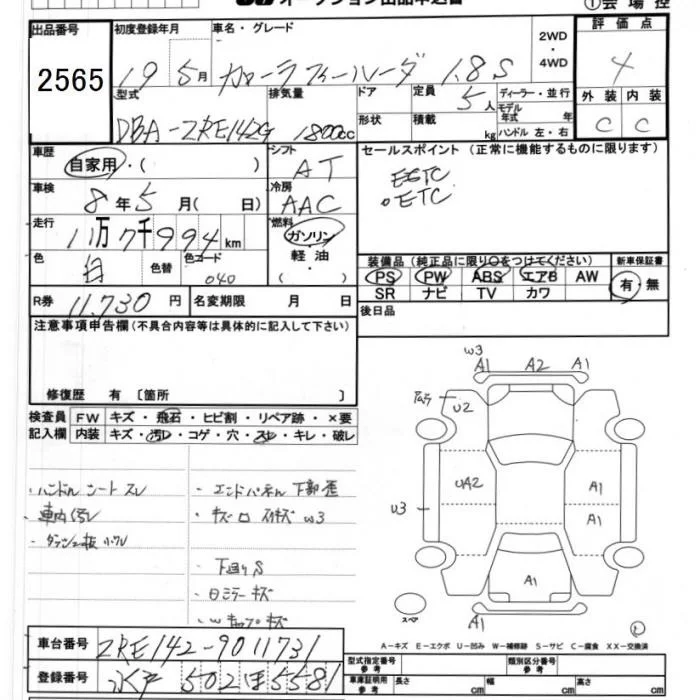 オークション出品申込書
①会場控
出品番号 2565
初度登録年月 19 5月
車名・グレード カローラフィールダー 1.8S
2WD・4WD
評価点 4
外装 C 内装 C
型式 DBA-ZRE142G
排気量 1800cc
ドア 形状
定員 5人 積載 kg
ディーラー・並行
モデル年式 年
ハンドル 左・右
車歴 自家用・( )
シフト AT
セールスポイント (正常に機能するものに限ります)
ETC
車検 8年5月( 日)
冷房 AAC
走行 11万7千994km
燃料 ガソリン 軽油・( )
色 白 色替 カラーコード 040
装備品 (純正品に限り○をつけてください)
PS PW ABS エアB AW
SR ナビ TV カワ
新車保証書 有・無
R券 11,730円 名変期限 月 日
後日品
注意事項申告欄 (不具合内容等は具体的に記入して下さい)
修復歴 有 〔箇所 〕
検査員記入欄
FW キズ・飛石・ヒビ割・リペア跡・×要
内装 キズ・汚レ・コゲ・穴・スレ・キレ・破レ
・ハンドル シート スレ
・車内汚レ
・エンドパネル 下部 歪
・下回りS
・ミラー キズ
W3
A1 A2 A1
U2
UA2
A1
A1
U3
A1
A1
スペア
A-キズ E-エクボ U-凹み W-補修跡 S-サビ C-腐食 XX-交換済
車台番号 ZRE142-9011731
登録番号 水戸 502 ほ 5581
型式指定番号 参考
類別区分番号 参考
車庫証明用 参考 長さ cm 幅 cm 高さ cm